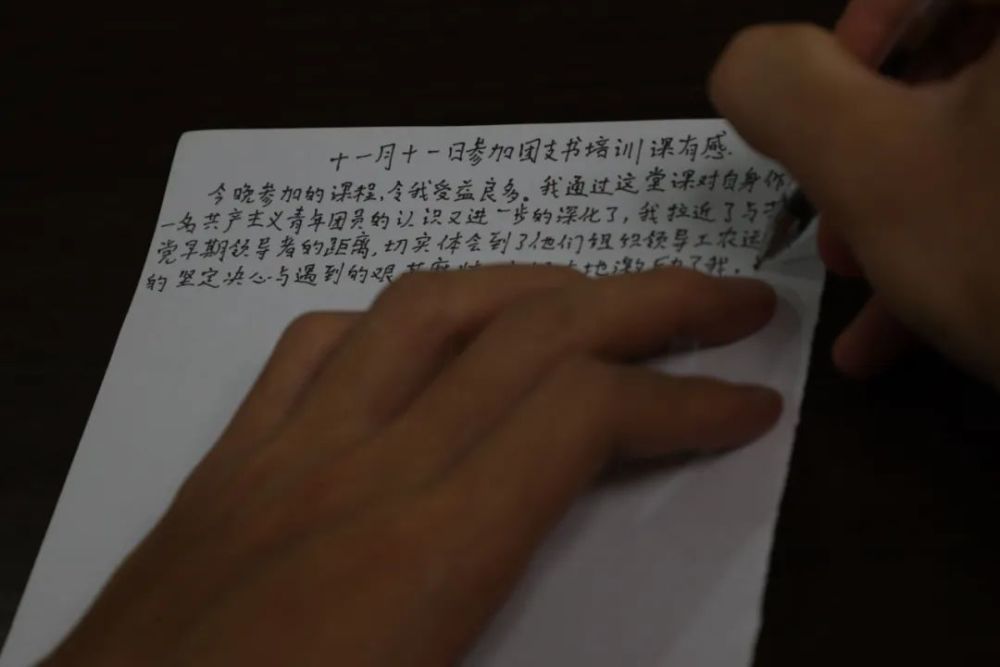 十一月十一日参加团支书培训课有感.
今晚参加的课程,令我受益良多。我通过这堂课对自身作
一名共产主义青年团员的认识又进一步的深化了,我拉近了与
党早期领导者的距离,切实体会到了他们组织领导工农运
的坚定决心与遇到的艰 地激励了我。